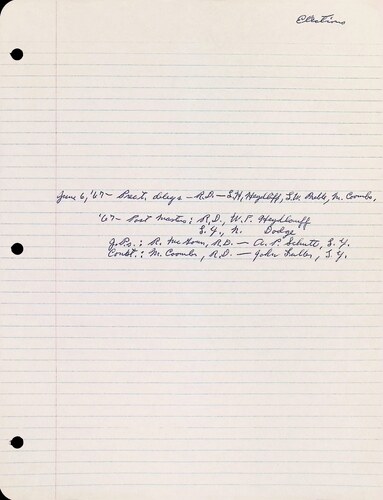 Elections
June 6, '67 — Prect. delegs — R.D. — E.H. Heydlauff, S.W. Bibb, M. Coombs,
'67 — Post Master; R.D., W.F. Heydlauff
S.Y., N. Dodge
J.Ps.; R. McHorn, R.D. — A.P. Schutt, S.Y.
Const.: M. Coombs, R.D. — John Fuller, S.Y.